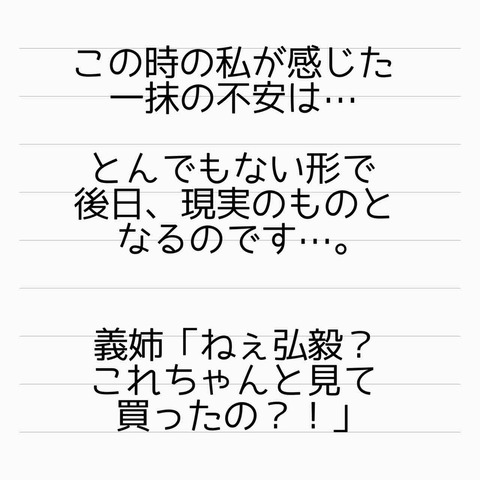 この時の私が感じた
一抹の不安は…
とんでもない形で
後日、現実のものと
なるのです…。
義姉「ねぇ弘毅？
これちゃんと見て
買ったの？！」